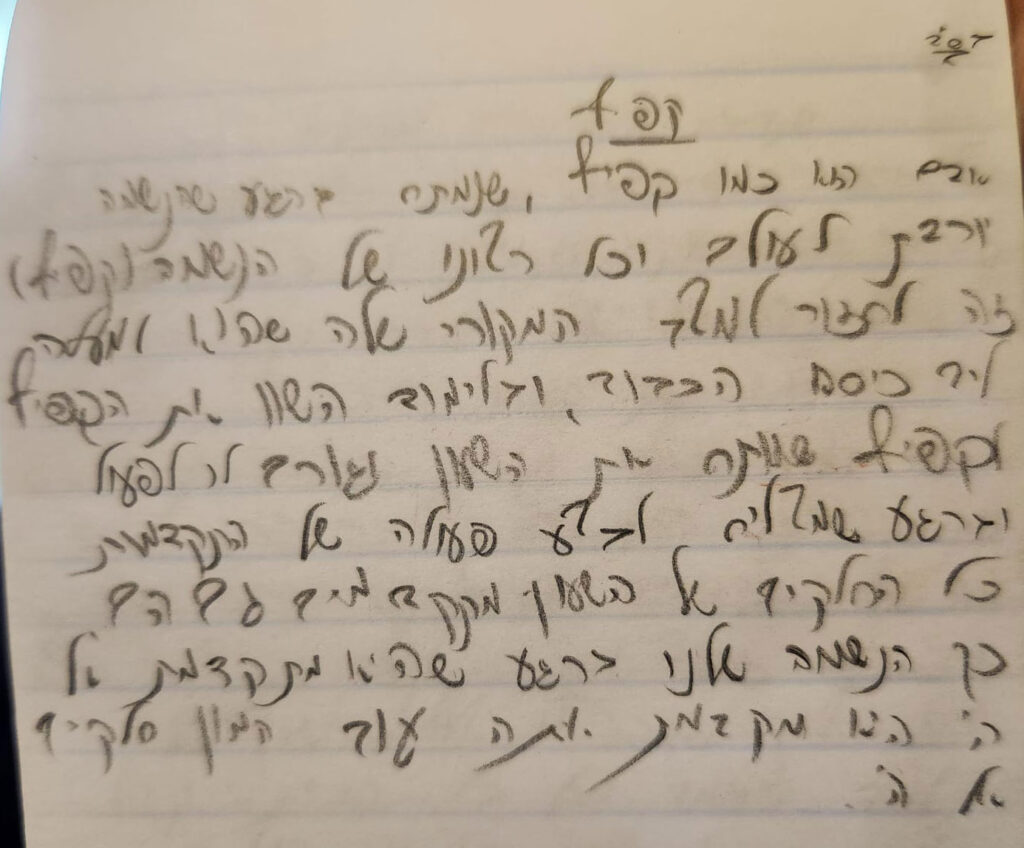 בס״ד
קפיץ
אדם הוא כמו קפיץ, שנמתח ברגע שהנשמה
יורדת לעולם וכל רצונו של הנשמה (קפיץ)
זה לחזור למצב המקורי שלה שהוא למעלה
ליד כיסא הכבוד, ובלימוד השוו את הקפיץ
לקפיץ שמותח את השעון וגורם לו לפעול
וברגע שמצליח לבצע פעולה של התקדמות
כל החלקים של השעון מתקדמים גם הם
כך הנשמה שלנו ברגע שהיא מתקדמת אל
ה' היא מקדמת איתה עוד המון חלקים
אל ה'.